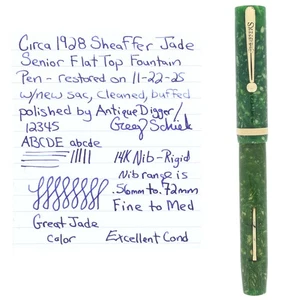 Circa 1928 Sheaffer Jade
Senior Flat Top Fountain
Pen - restored on 11-22-25
w/new sac, cleaned, buffed
polished by AntiqueDigger/
12345 Greg Schiek
ABCDE abcde
14K Nib-Rigid
Nib range is
.56mm to .72mm
Fine to Med
Great Jade
Color
Excellent Cond